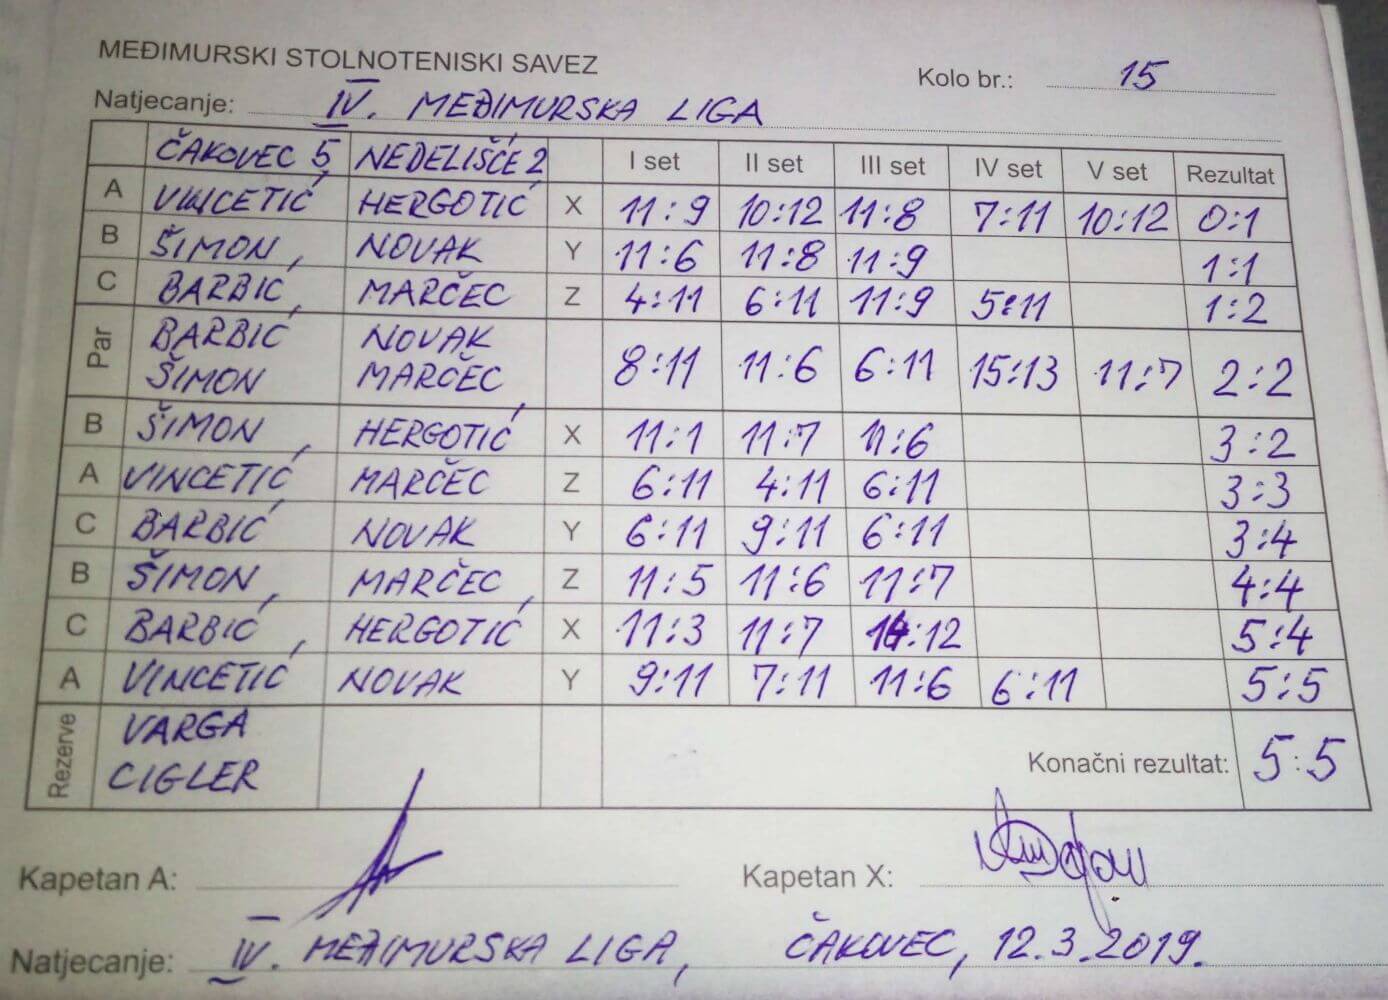 MEĐIMURSKI STOLNOTENISKI SAVEZ
Kolo br.: 15
Natjecanje: IV. MEĐIMURSKA LIGA
ČAKOVEC 5 NEDELIŠĆE 2 I set II set III set IV set V set Rezultat
A VINCETIĆ HERGOTIĆ X 11:9 10:12 11:8 7:11 10:12 0:1
B ŠIMON, NOVAK Y 11:6 11:8 11:9 1:1
C BARBIĆ, MARČEC Z 4:11 6:11 11:9 5:11 1:2
Par BARBIĆ NOVAK
ŠIMON MARČEC 8:11 11:6 6:11 15:13 11:7 2:2
B ŠIMON, HERGOTIĆ X 11:1 11:7 11:6 3:2
A VINCETIĆ MARČEC Z 6:11 4:11 6:11 3:3
C BARBIĆ NOVAK Y 6:11 9:11 6:11 3:4
B ŠIMON, MARČEC, Z 11:5 11:6 11:7 4:4
C BARBIĆ, HERGOTIĆ X 11:3 11:7 14:12 5:4
A VINCETIĆ NOVAK Y 9:11 7:11 11:6 6:11 5:5
Rezerve VARGA
CIGLER
Konačni rezultat: 5:5
Kapetan A: Kapetan X:
Natjecanje: IV. MEĐIMURSKA LIGA, ČAKOVEC, 12.3.2019.